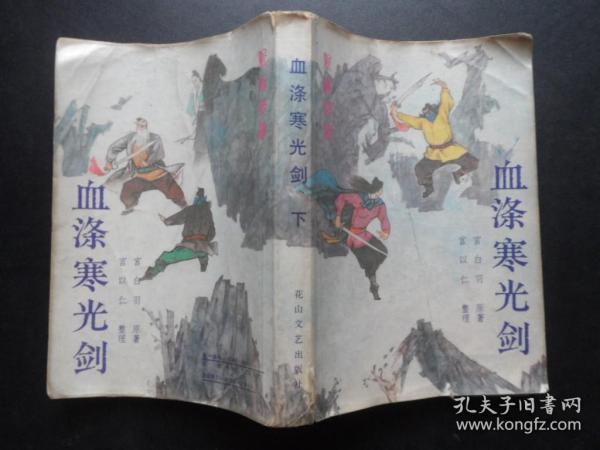 血涤寒光剑
宫白羽 原著
宫以仁 整理
血涤寒光剑 下
花山文艺出版社
血涤寒光剑
宫白羽 原著
宫以仁 整理
孔夫子旧书网
www.kongfz.com